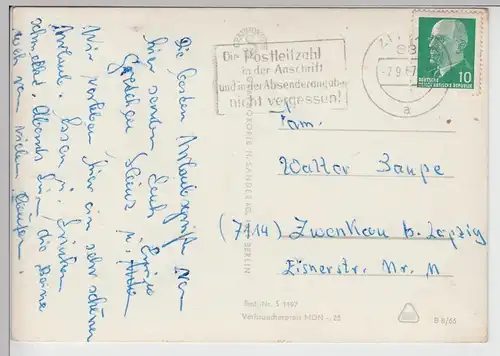 Die besten Urlaubsgrüße von
hier senden Euch
Gretchen Heinz u.
Wir verleben hier ein sehr schönen
Urlaub. Essen u. Trinken
schmeckt. Abends die Beine
weh vom vielen Laufen.
Die Postleitzahl
in der Anschrift
und in der Absenderangabe
nicht vergessen!
-7.9.67
a
DEUTSCHE
DEMOKRATISCHE REPUBLIK
10
Fam.
Walter Baupe
(7114) Zwenkau b. Leipzig
Eisnerstr. Nr. 11
BERLIN
Best.-Nr. S 1497
Verbraucherpreis MDN -,25
B 6/66